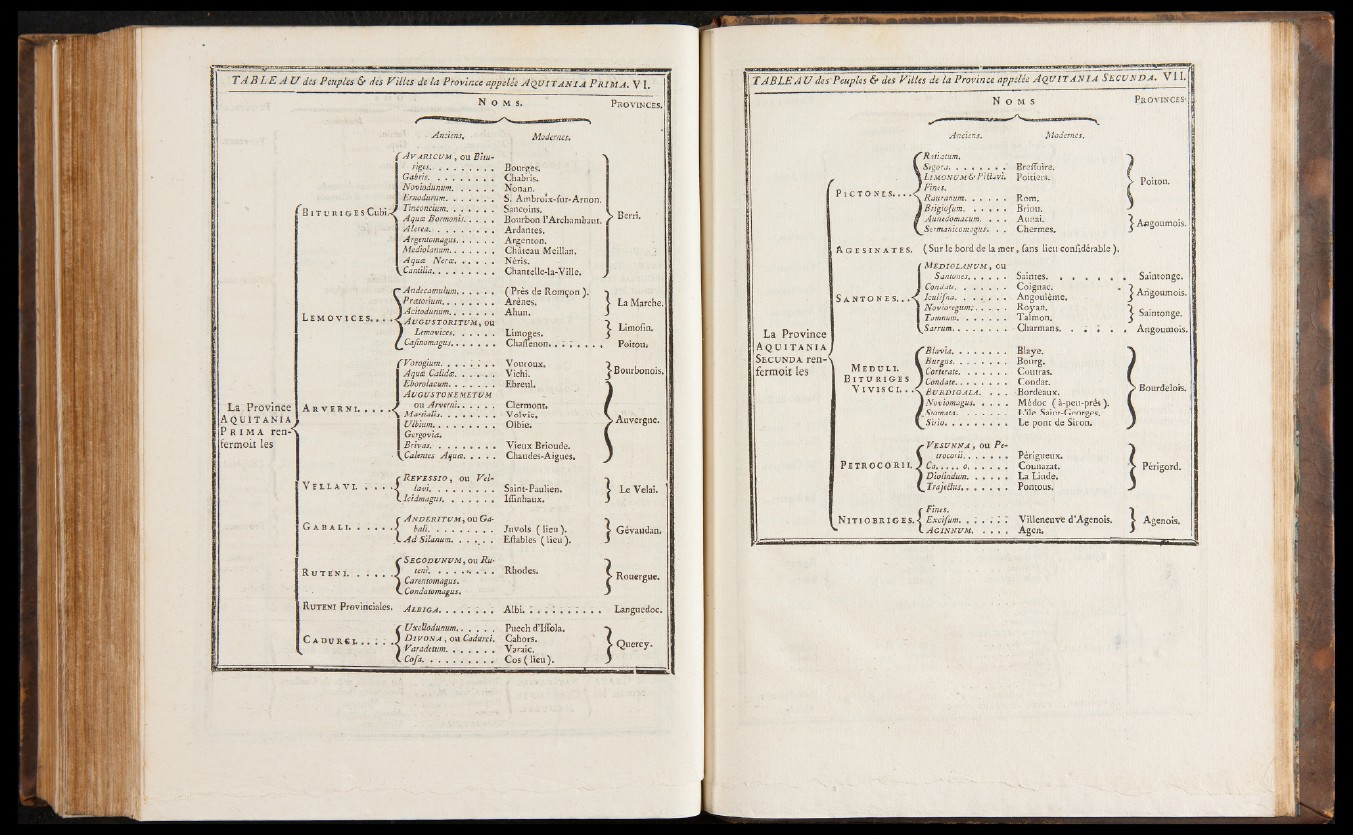 TABLEAU des Peuples & des Villes de la Province appelée AQUITANIA PRIMA. VI.
NOMS. PROVINCES.
Anciens. Modernes.
La Province AQUITANIA PRIMA renfermoit les
BITURIGES Cubi.
AVARICUM, ou Bituriges. Bourges.
Gabris. Chabris.
Noviodunum. Nonan.
Ernodurum. S. Ambroix-sur-Arnon.
Tinconcium. Sancoins.
Aquæ Bormonis. Bourbon l'Archambaut.
Alerea. Ardantes.
Argentomagus. Argenton.
Mediolanum. Château Meillan.
Aquæ Neræ. Néris.
Cantilia. Chantelle-la-Ville.
Berri.
LEMOVICES.
Andecamulum. (Près de Romçon).
Prætorium. Arènes.
Acitodunum. Ahun.
La Marche.
AUGUSTORITUM, ou
Lemovices. Limoges.
Limosin.
Cassinomagus. Chassenon. Poitou.
ARVERNI.
Vorogium. Vouroux.
Aquæ Calidæ. Vichi.
Bourbonois.
Eborolacum. Ebreul.
AUGUSTONEMETUM
ou Arverni. Clermont.
Martialis. Volvic.
Ulbium. Olbie.
Gergovia.
Brivas. Vieux Brioude.
Calentes Aquæ. Chaudes-Aigues.
Auvergne.
VELLAVI.
REVESSIO, ou Vellavi. Saint-Paulien.
Icidmagus. Issinhaux.
Le Velai.
GABALI.
ANDERITUM, ou Gabali. Juvols (lieu).
Ad Silanum. Estables (lieu).
Gévaudan.
RUTENI.
SEGODUNUM, ou Ruteni. Rhodes.
Carentomagus.
Condatomagus.
Rouergue.
RUTENI Provinciales. ALBIGA. Albi. Languedoc.
CADURCI.
Uxellodunum. Puech d'Issola.
DIVONA, ou Cadurci. Cahors.
Varadetum. Varaic.
Cosa. Cos (lieu).
Quercy.
TABLEAU des Peuples & des Villes de la Province appelée AQUITANIA SECUNDA. VII.
NOMS PROVINCES.
Anciens. Modernes.
La Province AQUITANIA SECUNDA renfermoit les
PICTONES.
Ratiatum.
Segora. Bressuire.
LEMONUM & Pictavi. Poitiers.
Fines.
Rauranum. Rom.
Brigiosum. Briou.
Poitou.
Aunedomacum. Aunai.
Sermanicomagus. Chermes.
Angoumois.
AGESINATES. (Sur le bord de la mer, sans lieu considérable).
SANTONES.
MEDIOLANUM, ou
Santones. Saintes. Saintonge.
Condate. Coignac.
Iculisna. Angoulême.
Angoumois.
Novioregum. Royan.
Tamnum. Talmon.
Saintonge.
Sarrum. Charmans. Angoumois.
MEDULI.
BITURIGES
VIVISCI.
Blavia. Blaye.
Burgus. Bourg.
Corterate. Coutras.
Condate. Condat.
BURDIGALA. Bordeaux.
Noviomagus. Médoc (à-peu-près).
Stomata. L'île Saint-Georges.
Sirio. Le pont de Siron.
Bourdelois.
PETROCORII.
VESUNNA, ou Petrocorii. Périgueux.
Co..... o. Counazat.
Diolindum. La Linde.
Trajectus. Pontous.
Périgord.
NITIOBRIGES.
Fines.
Excisum. Villeneuve d'Agenois.
AGINNUM. Agen.
Agenois.